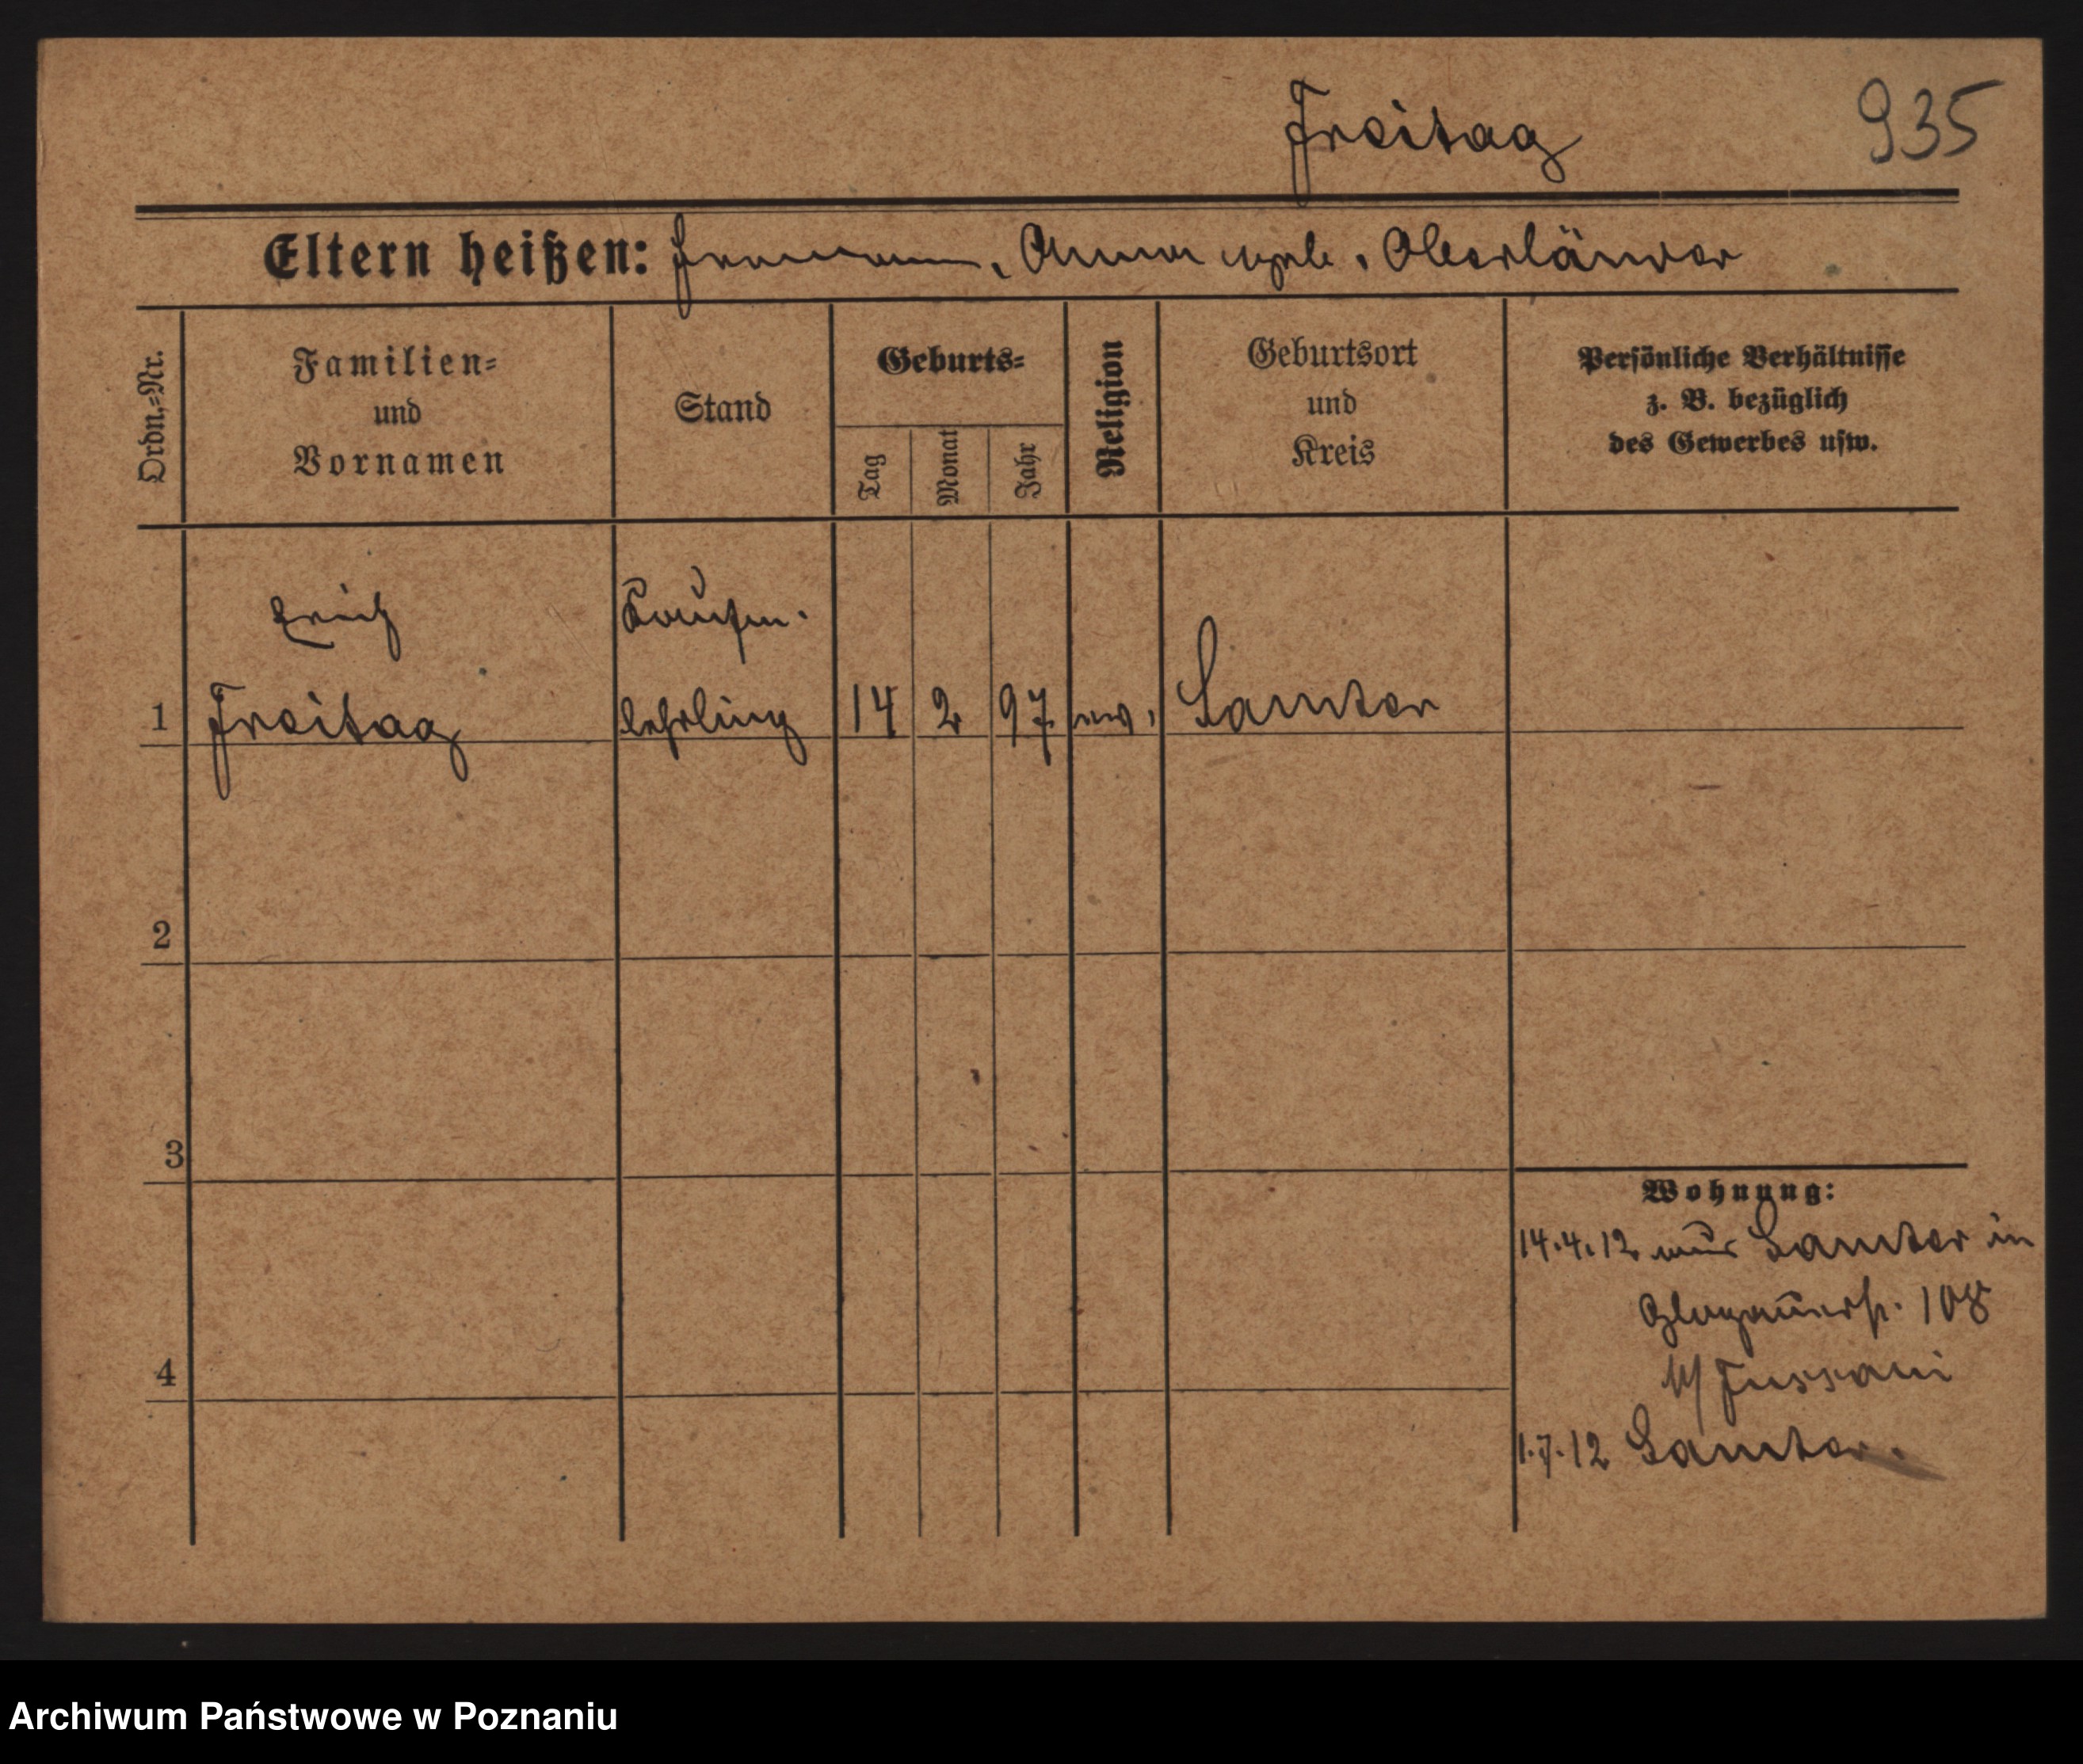 Freitag 935
Eltern heißen: Hermann, Anna geb. Oberländer
Ordn.-Nr.
Familien-
und
Vornamen
Stand
Geburts-
Tag
Monat
Jahr
Religion
Geburtsort
und
Kreis
Persönliche Verhältnisse
z. B. bezüglich
des Gewerbes usw.
Erich Kaufm.
1 Freitag lehrling 14 2 97 ev. Samter
2
3
Wohnung:
14.4.12 aus Samter in
Glogauerstr. 108
4
1.7.12 Samter.
Archiwum Państwowe w Poznaniu